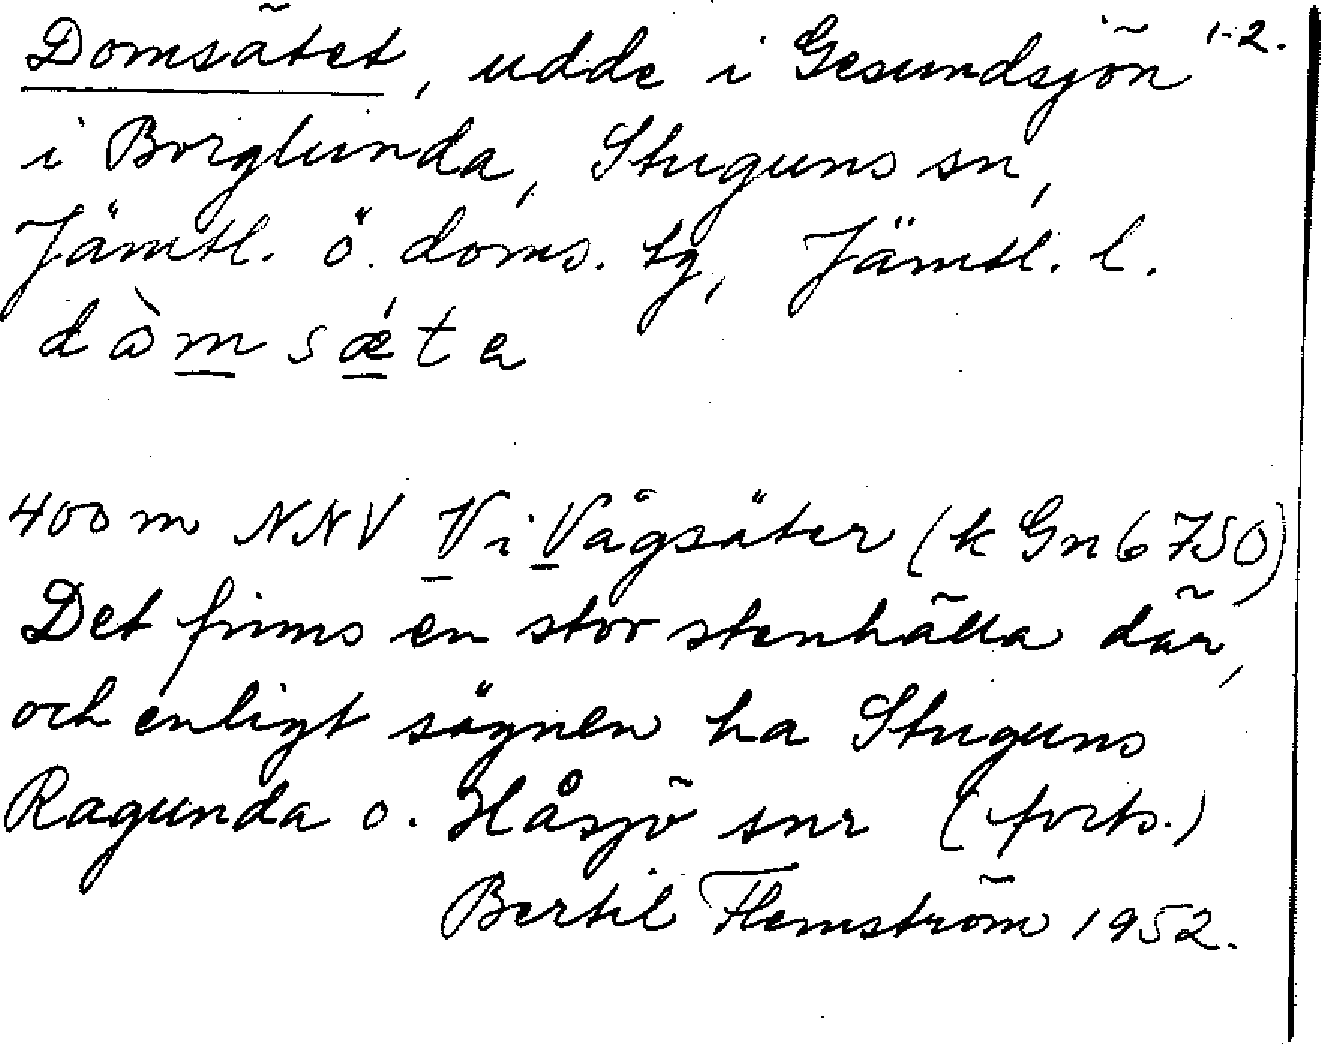 Domsätet, udde i Gesundsjön 1-2.
i Borglunda, Stuguns sn,
Jämtl. ö. doms. tg, Jämtl. l.
dòmsǽta
400 m NNV V i Vågsäter (k Gn 6750)
Det finns en stor stenhälla där,
och enligt sägnen ha Stuguns
Ragunda o. Håsjö snr (forts.)
Bertil Flemström 1952.